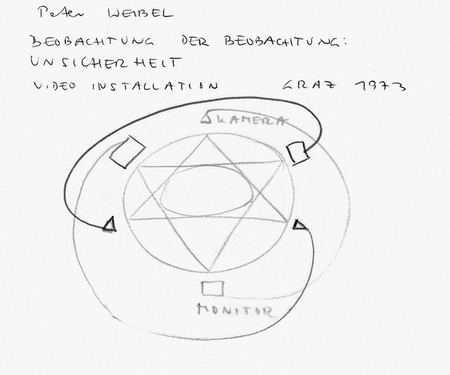 Peter WEIBEL
BEOBACHTUNG DER BEOBACHTUNG:
UNSICHERHEIT
VIDEO INSTALLATION GRAZ 1973
KAMERA
MONITOR